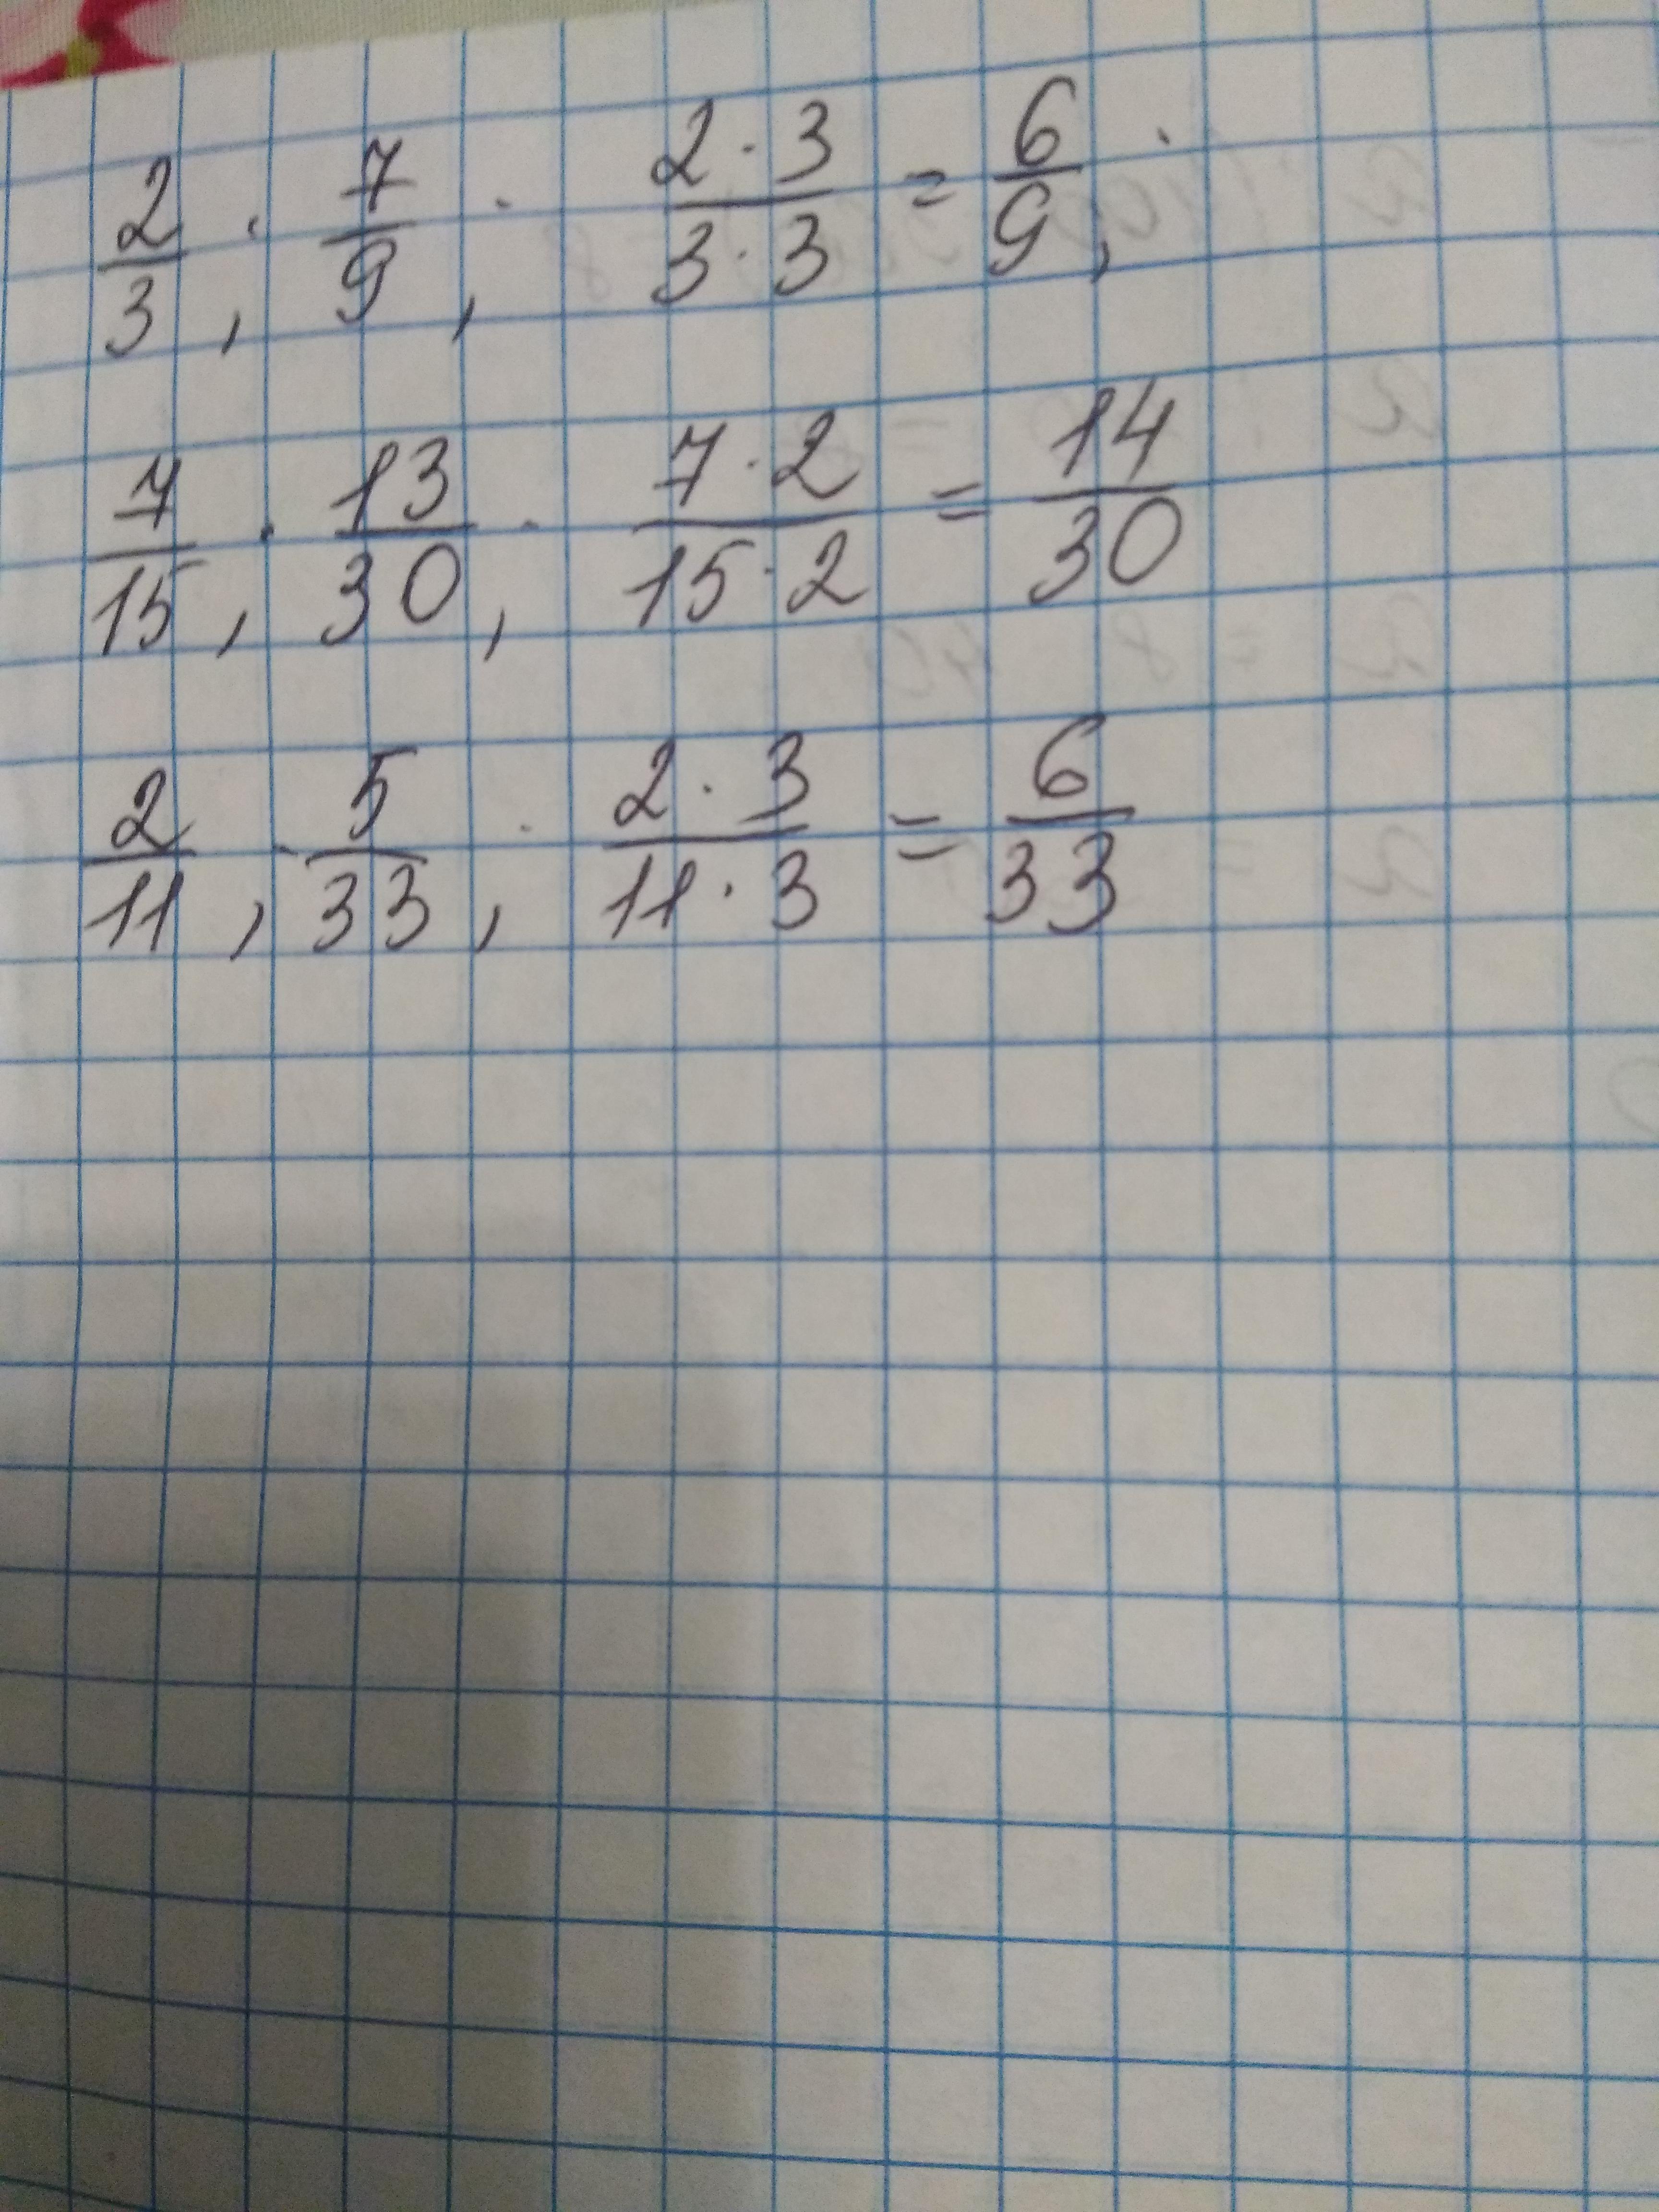 2/3 ; 7/9 ; 2·3/3·3 = 6/9 ;
7/15 ; 13/30 ; 7·2/15·2 = 14/30
2/11 ; 5/33 ; 2·3/11·3 = 6/33